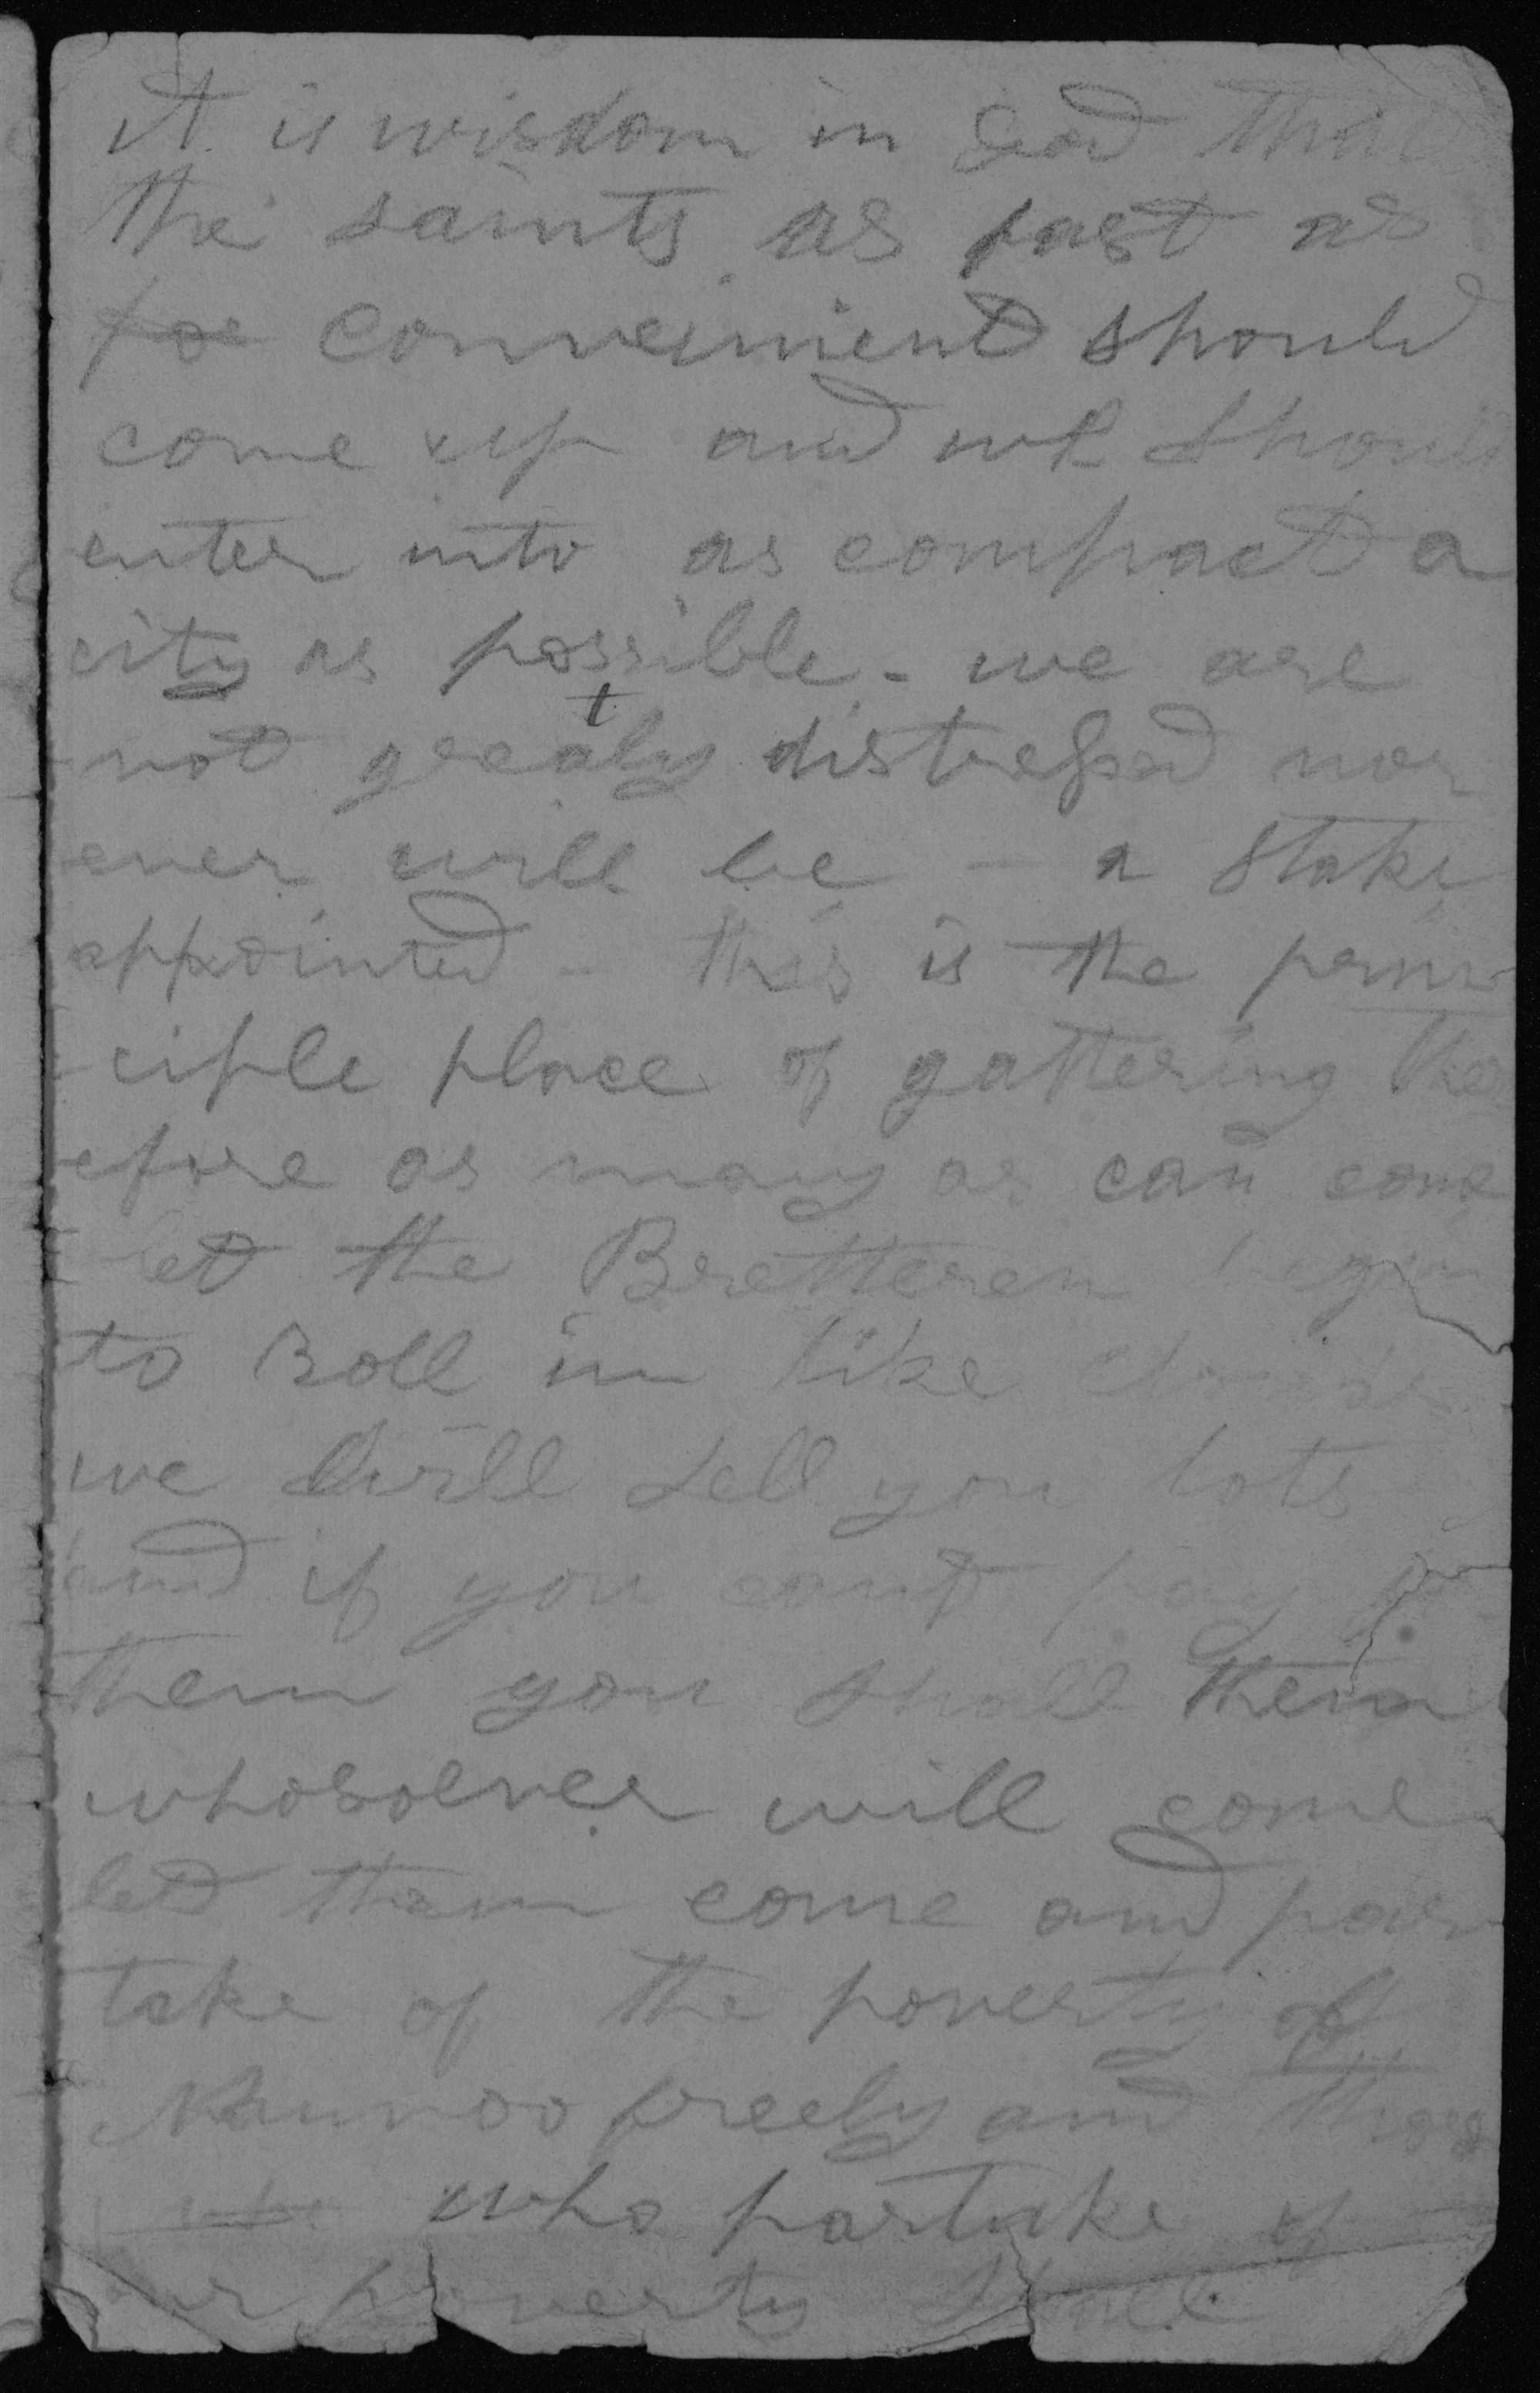 it is wisdom in God that
the saints as fast as
for conveinient should
come up and we should
enter into as compact a
city as possible - we are
not greatly distressed nor
ever will be - a Stake
appointed - this is the prin
ciple place of gattering ther
efore as many as can come
let the Bretteren begin
to Roll in like clouds
we will sell you lots
and if you cant pay for
them you shall them
whosoever will come
let them come and par
take of the poverty of
Nauvoo freely and those
who partake of
our poverty shall